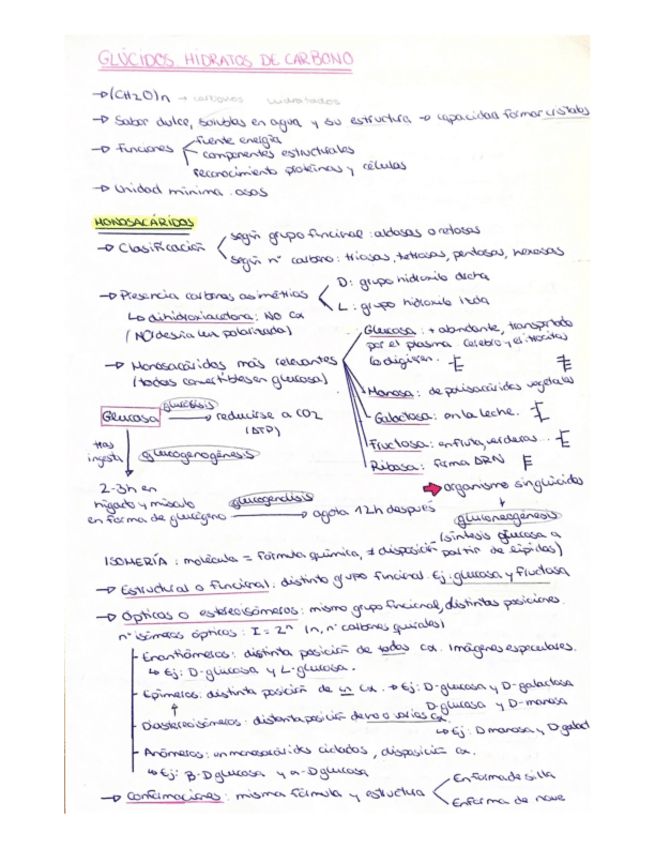 GLÚCIDOS HIDRATOS DE CARBONO
→ (CH2O)n → carbonos hidratados
→ Sabor dulce, solubles en agua y su estructura → capacidad formar cristales
→ Funciones
fuente energía
componentes estructurales
reconocimiento proteínas y células
→ Unidad mínima: osas
MONOSACÁRIDOS
→ Clasificación
según grupo funcional: aldosas o cetosas
según nº carbono: triosas, tetrosas, pentosas, hexosas
→ Presencia carbonos asimétricos
D: grupo hidroxilo dcha
L: grupo hidroxilo izda
↳ dihidroxiacetona: NO Cα
(NO desvía luz polarizada)
→ Monosacáridos más relevantes
(todos convertibles en glucosa)
Glucosa: + abundante, transportado
por el plasma cerebro y eritrocitos
lo digieren.
Manosa: de polisacáridos vegetales
Galactosa: en la leche.
Fructosa: en fruta, verduras...
Ribosa: forma ARN
Glucosa glucólisis → reducirse a CO2
(ATP)
tras
ingesta glucogenogénesis
2-3h en
hígado y músculo
en forma de glucógeno glucogenólisis → agota 12h después
→ organismo sin glúcidos
gluconeogénesis
(síntesis glucosa a
partir de lípidos)
ISOMERÍA: molécula = fórmula química, ≠ disposición
→ Estructural o funcional: distinto grupo funcional. Ej: glucosa y fructosa
→ Ópticos o estereoisómeros: mismo grupo funcional, distintas posiciones.
nº isómeros ópticos: I = 2ⁿ (n, nº carbones quirales)
Enantiómeros: distinta posición de todos Cα. Imágenes especulares.
↳ Ej: D-glucosa y L-glucosa.
Epímeros: distinta posición de un Cα. → Ej: D-glucosa y D-galactosa
D-glucosa y D-manosa
Diastereoisómeros: distinta posición de uno o varios Cα.
↳ Ej: D manosa y D galact
Anómeros: en monosacáridos ciclados, disposición Cα.
↳ Ej: β-D glucosa y α-D glucosa
→ Conformaciones: misma fórmula y estructura
En forma de silla
En forma de nave